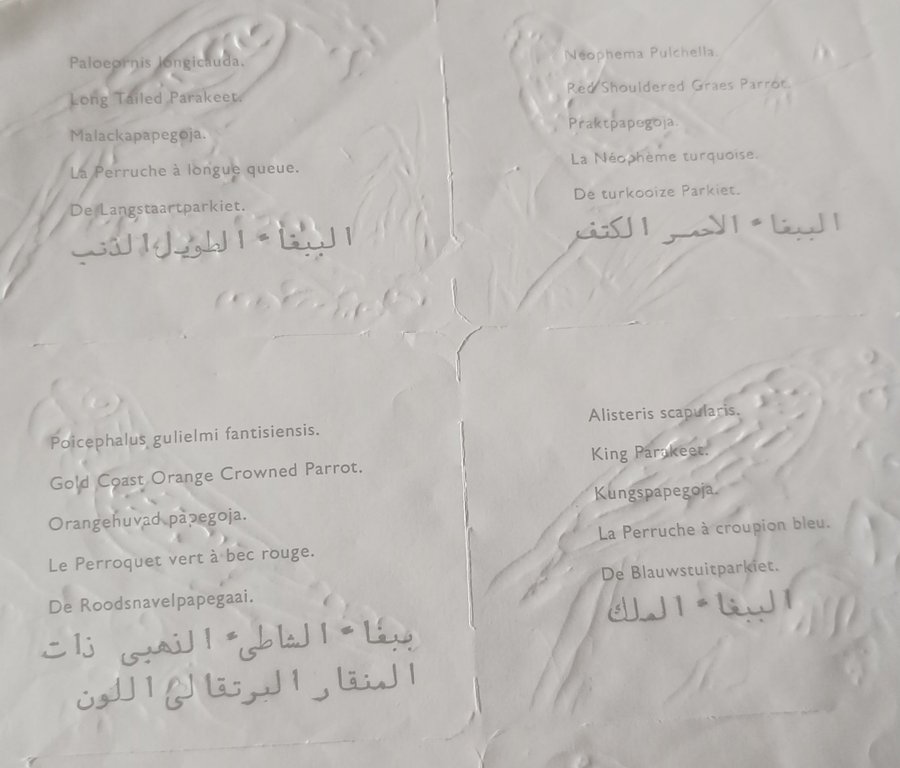 Paloeornis longicauda.
Long Tailed Parakeet.
Malackapapegoja.
La Perruche à longue queue.
De Langstaartparkiet.
الببغاء الطويل الذنب
Neophema Pulchella.
Red Shouldered Graes Parrot.
Praktpapegoja.
La Néophème turquoise.
De turkooize Parkiet.
الببغاء الاحمر الكتف
Poicephalus gulielmi fantisiensis.
Gold Coast Orange Crowned Parrot.
Orangehuvad papegoja.
Le Perroquet vert à bec rouge.
De Roodsnavelpapegaai.
ببغاء الشاطىء الذهبى ذات
المنقار البرتقالى اللون
Alisteris scapularis.
King Parakeet.
Kungspapegoja.
La Perruche à croupion bleu.
De Blauwstuitparkiet.
الببغاء الملك